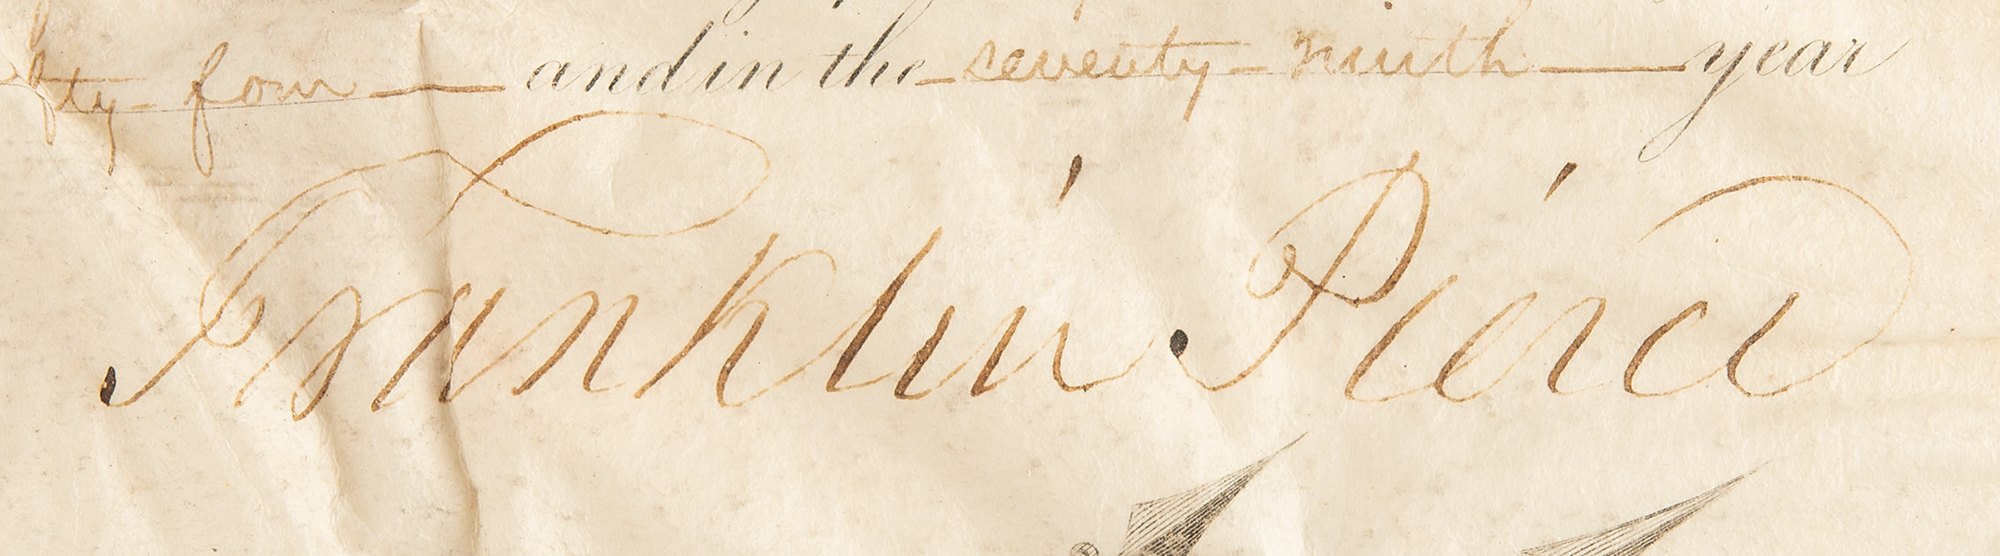 fty-four and in the seventy-ninth year
Franklin Pierce